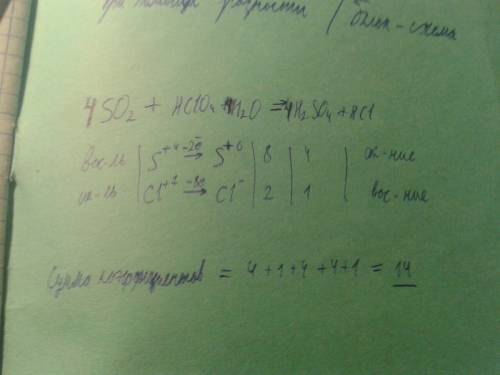 при помощи / блок-схема
4SO₂ + HClO₄ + 4H₂O = 4H₂SO₄ + HCl
вос-ль | S⁺⁴ -2e̅ → S⁺⁶ | 8 | 4 | ок-ние
ок-ль | Cl⁺⁷ -8e̅ → Cl⁻ | 2 | 1 | вос-ние
Сумма коэффициентов = 4+1+4+4+1 = 14